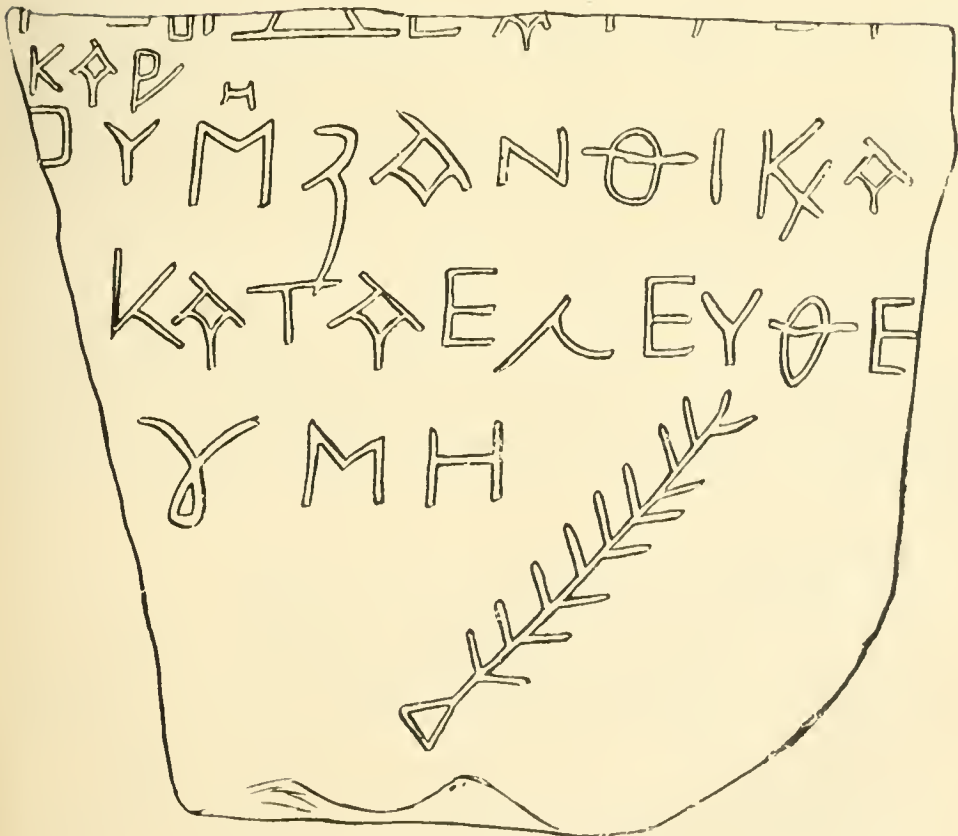 ΚΑΡ
ΟΥΜΗΞΑΝΘΙΚΑ
ΚΑΤΑΕΛΕΥΘΕ
ΥΜΗ